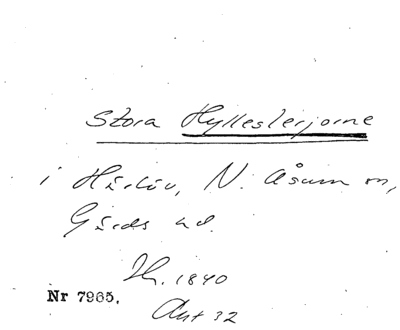 Stora Hylleslerjorne
i Härlöv, N. Åsum sn,
Gärds hd.
Jh. 1840
Nr 7965.
Akt 32